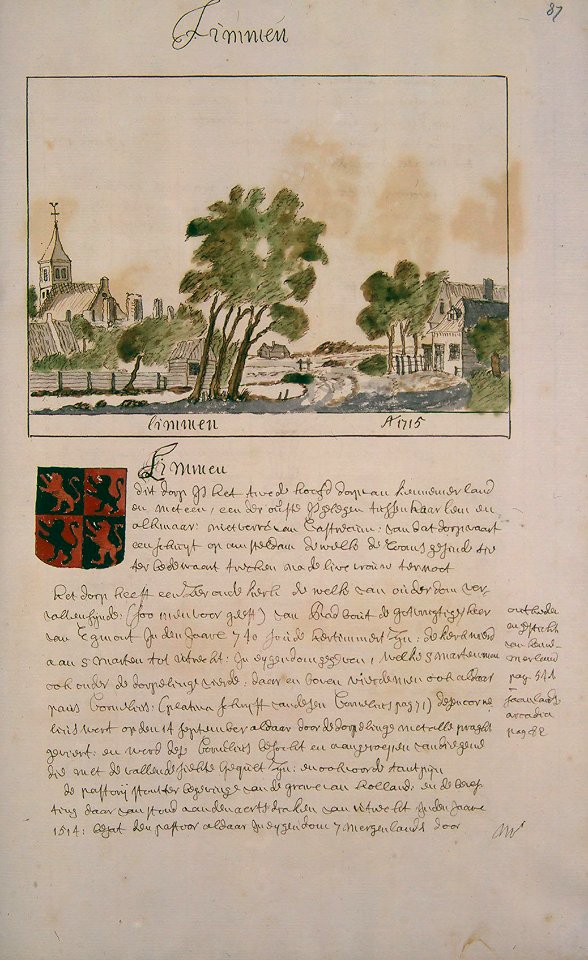 87
Limmen
Limmen A 1715
Limmen
dit dorp is het twede hoofd dorp van kennemerland
en met een: een der outste gelegen tusschen haarlem en
alkmaar: niet verre van Castricum: van dat dorp vaart
een schuyt op amsteldam de welke de
ter bedevaart trecken na de live vrouw ter noot
het dorp heeft een zeer oude kerk de welk van ouderdom ver
vallen zynde: (soo men voor geeft) van Radbout de heer
van Egmont Inden Jaare 740 soude zyn: de kerk werd
aan S marten tot utrecht: In eygendom gegeven, welke S marten
ook onder de dorpelinge vierde: daer en boven vierde men ook aldaar
paus Cornelius: (platina schryft van desen Cornelius pag 71) desen corne
lius wert op den 14 september aldaar door de dorpelinge met alle praght
geviert: en werd dese Cornelius besocht en aangeroepen van diegene
die met de vallende siekte gequelt zyn: en ook voor de tantpyn
de pastory stont ter begevinge van de grave van holland: en de
ting daar van stond aan den aertsdiaken van utrecht Inden Jaare
1514: besat den pastoor aldaar In eygendom 7 mergen lands door
outheden
en gestichten
van kenne-
merland
pag. 541
saanlands
arcadia
pag 82